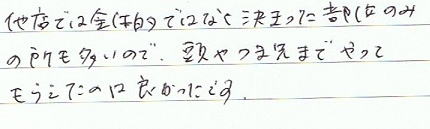 他店では全体的ではなく決まった部位のみ
の所も多いので、頭やつま先までやって
もらえたのは良かったです。